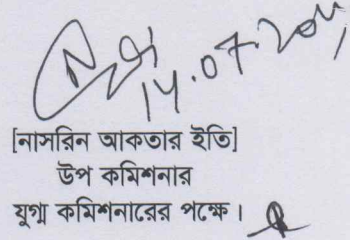 [নাসরিন আকতার ইতি]
উপ কমিশনার
যুগ্ম কমিশনারের পক্ষে।